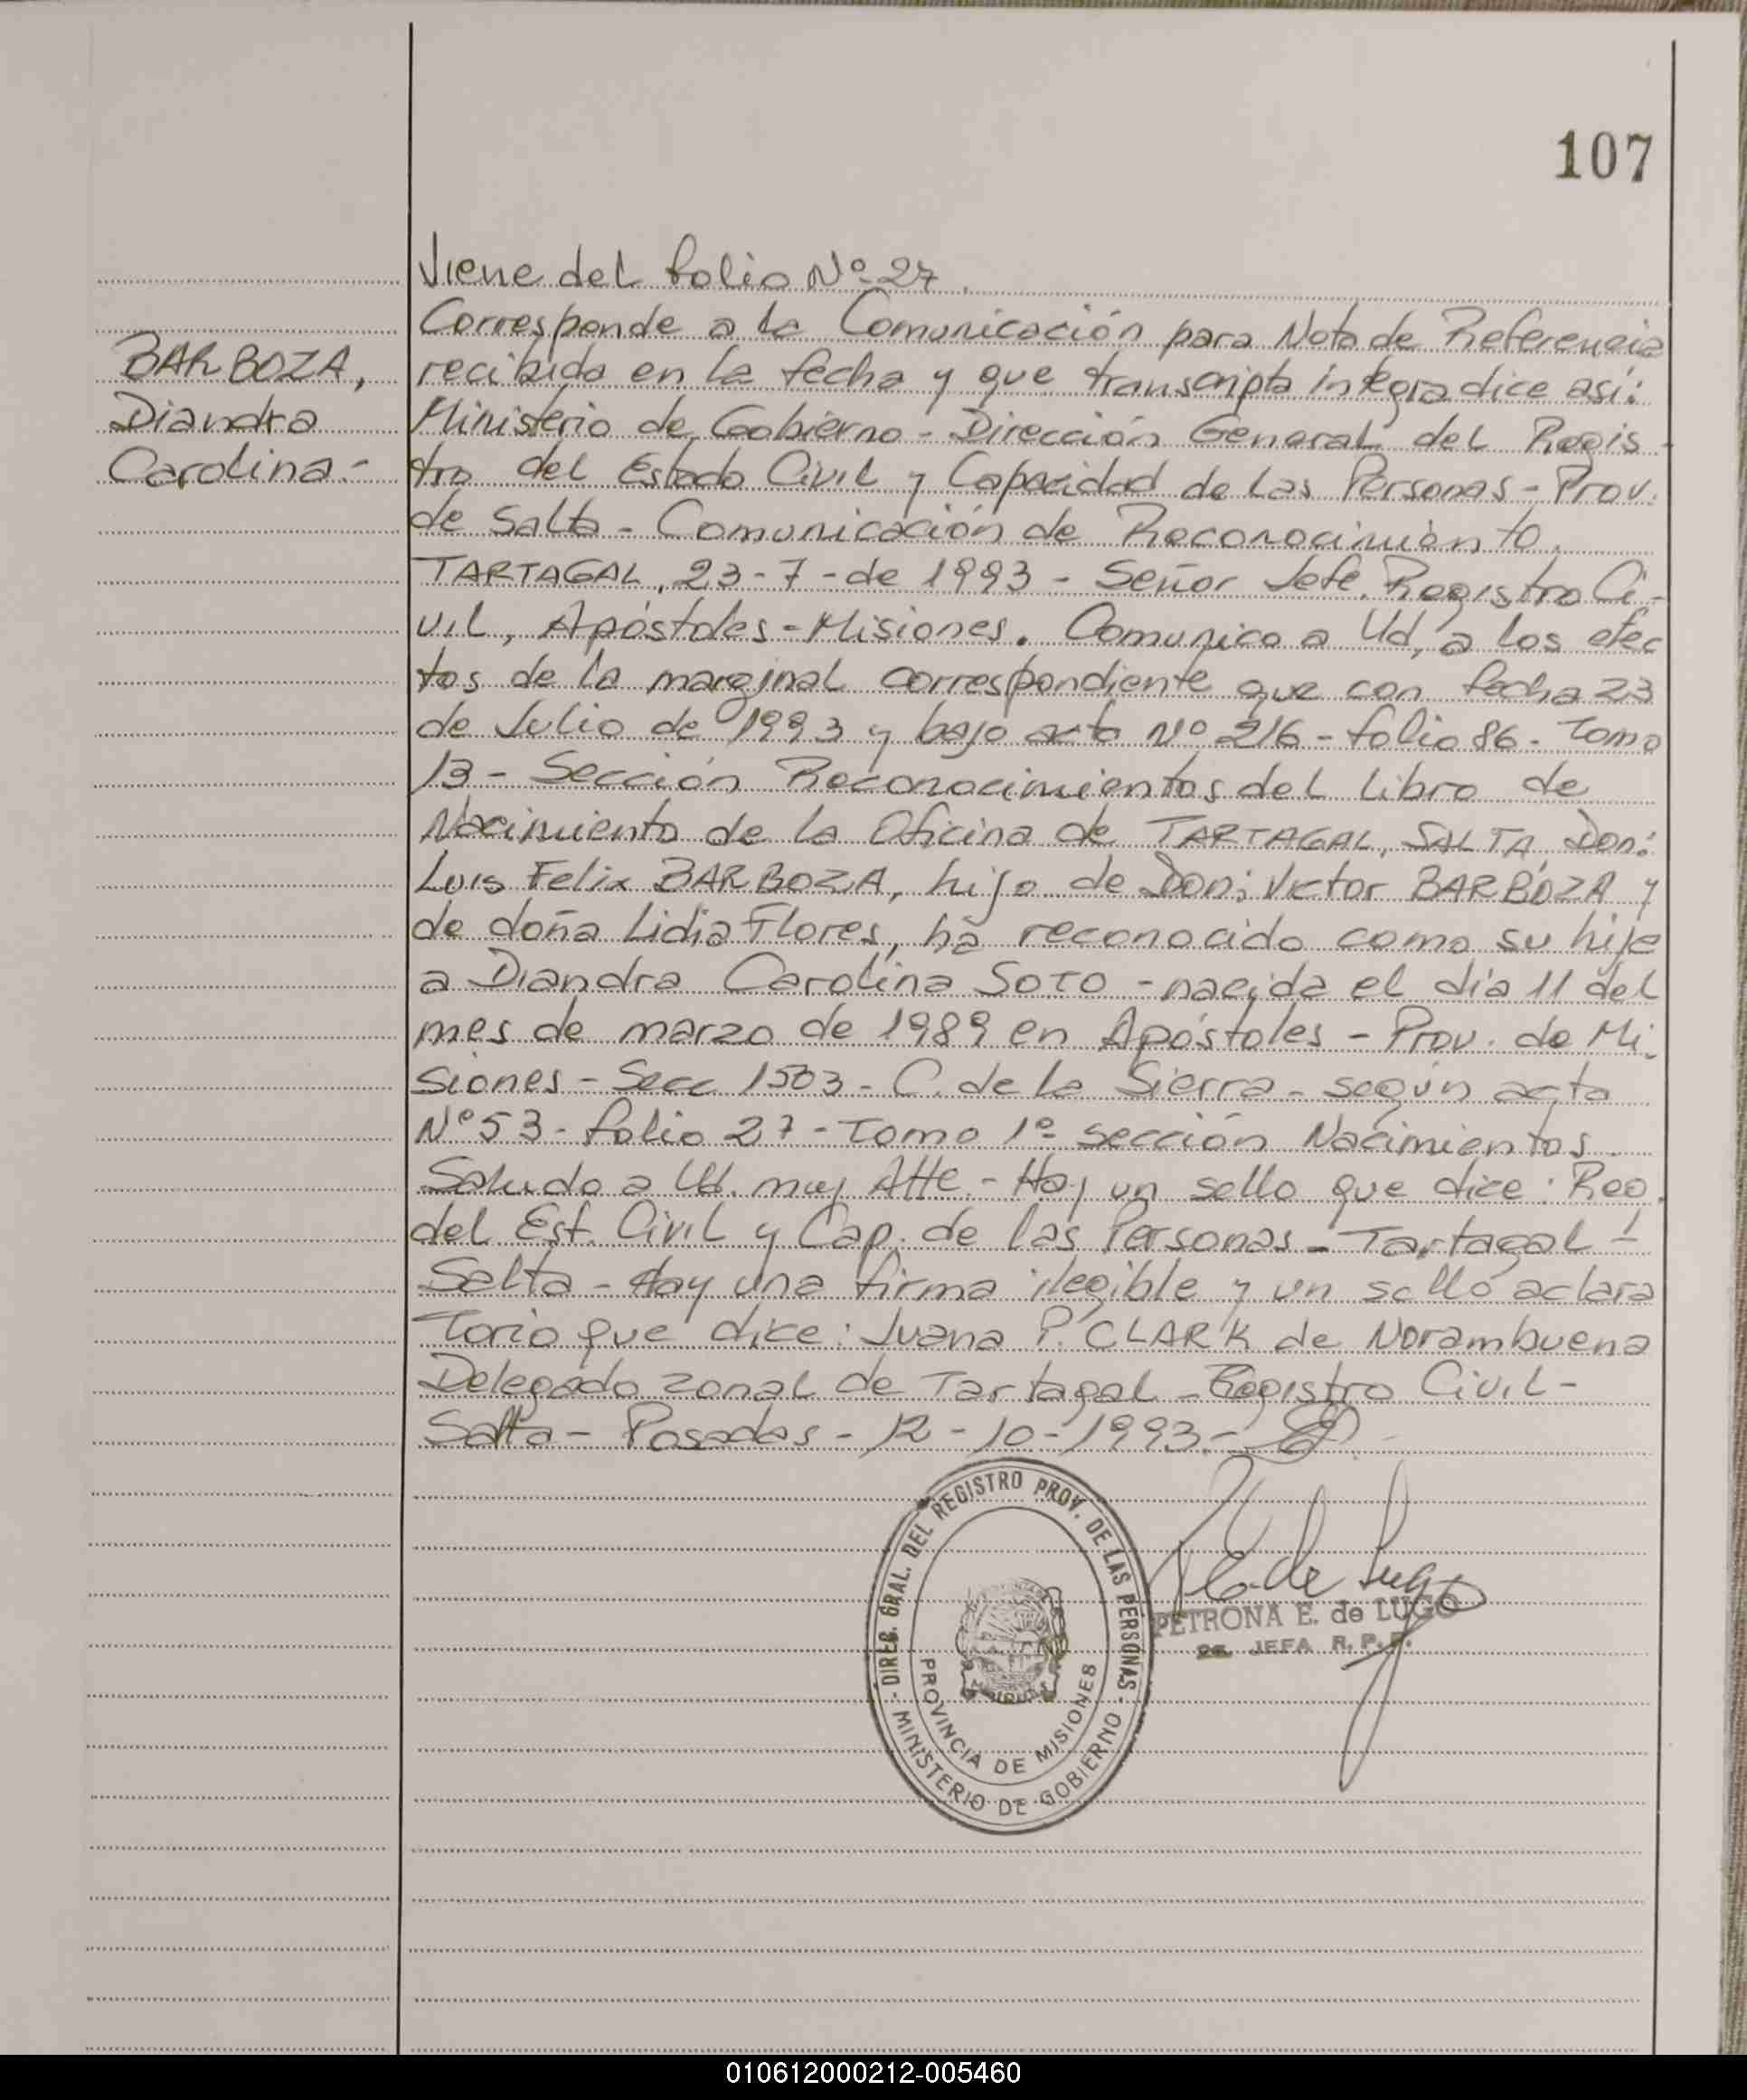 107
Viene del folio Nº 27.
Corresponde a la Comunicación para Nota de Referencia
BARBOZA,
Diandra
Carolina.-
recibida en la fecha y que transcripta integra dice así:
Ministerio de Gobierno - Dirección General del Regis-
tro del Estado Civil y Capacidad de las Personas - Prov.
de Salta - Comunicación de Reconocimiento.
TARTAGAL, 23-7-de 1993 - Señor Jefe. Registro Ci-
vil, Apóstoles - Misiones. Comunico a Ud, a los efec
tos de la marginal correspondiente que con fecha 23
de Julio de 1993 y bajo acta Nº 216 - folio 86 - Tomo
13 - Sección Reconocimientos del Libro de
Nacimiento de la Oficina de TARTAGAL, SALTA, Don:
Luis Felix BARBOZA, hijo de Don: Victor BARBOZA y
de doña Lidia Flores, ha reconocido como su hija
a Diandra Carolina SOTO - nacida el día 11 del
mes de marzo de 1989 en Apóstoles - Prov. de Mi-
siones - Secc 1503 - C. de la Sierra - según acta
Nº 53 - folio 27 - Tomo 1º sección Nacimientos.
Saludo a Ud. muy Atte. - Hay un sello que dice: Reg.
del Est. Civil y Cap. de las Personas - Tartagal -
Salta - Hay una firma ilegible y un sello aclara
Torio que dice: Juana P. CLARK de Norambuena
Delegada zonal de Tartagal - Registro Civil -
Salta - Posadas - 12-10-1993.-
DIREC. GRAL. DEL REGISTRO PROV. DE LAS PERSONAS
MINISTERIO DE GOBIERNO
PROVINCIA DE MISIONES
E. de Lugo
PETRONA E. de LUGO
JEFA R. P. P.
010612000212-005460